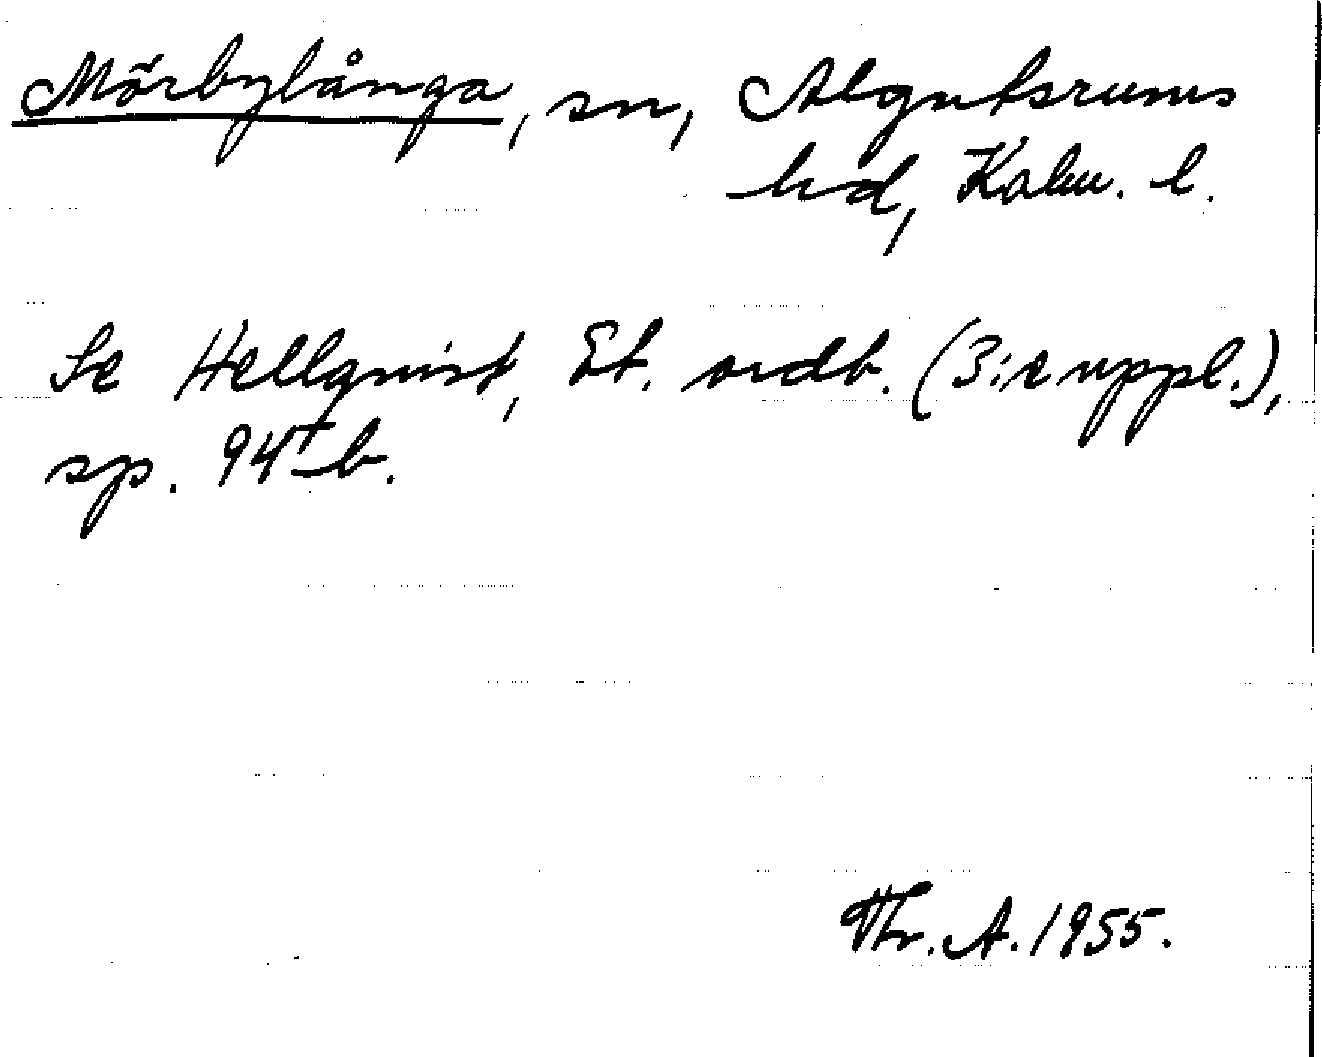 Mörbylånga, sn, Algutsrums
hd, Kalm. l.
Se Hellquist, Et. ordb. (3:e uppl.),
sp. b.
Thr. A. 1955.